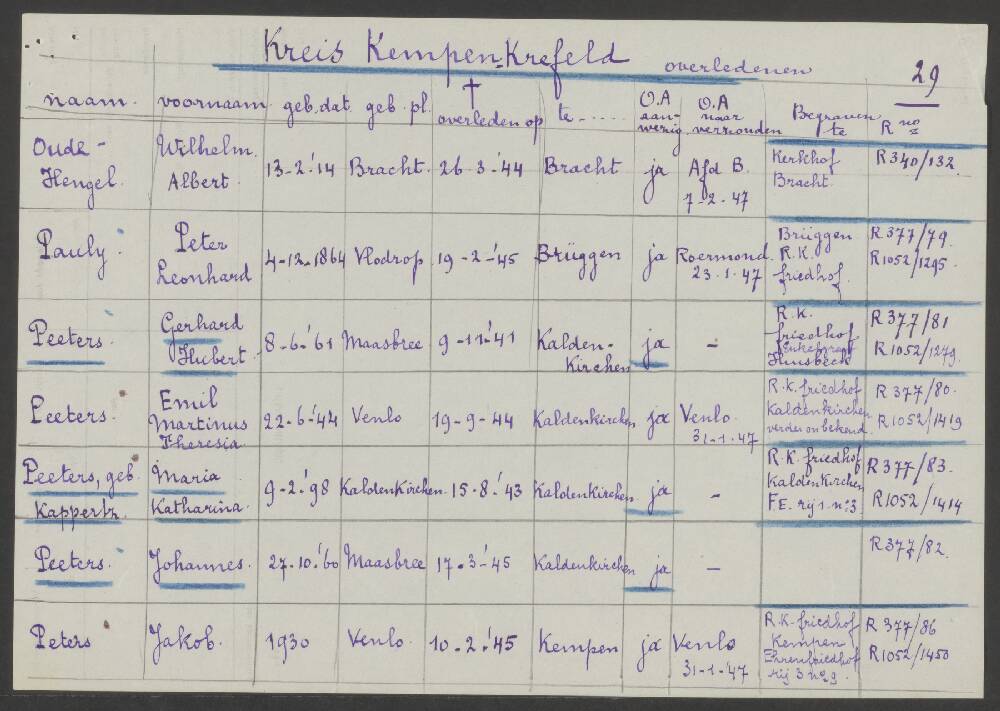 Kreis Kempen-Krefeld overledenen 29
naam. voornaam geb. dat. geb. pl. † overleden op te ...... O.A aan-wezig O.A naar verzonden Begraven te R no
Oude-Hengel. Wilhelm. Albert. 13-2-'14 Bracht. 26-3-'44 Bracht ja Afd B. 7-2-47 Kerkhof Bracht. R340/132.
Pauly Peter Leonhard 4-12-1864 Vlodrop 19-2-'45 Brüggen ja Roermond. 23-1-47 Brüggen R.K. friedhof. R377/79. R1052/1295.
Peeters. Gerhard Hubert 8-6-'61 Maasbree 9-11-'41 Kalden-Kirchen ja - R.K. friedhof R377/81 R1052/1279.
Peeters. Emil Martinus Theresia 22-6-'44 Venlo 19-9-44 Kaldenkirchen ja Venlo. 31-1-47 R.K. friedhof Kaldenkirchen verder onbekend. R377/80. R1052/1419
Peeters, geb. Kappertz. Maria Katharina. 9-2-'98 Kaldenkirchen. 15-8-'43 Kaldenkirchen ja - R.K. friedhof Kaldenkirchen F.E. rij 1. no: 3 R377/83. R1052/1414
Peeters. Johannes. 27-10-'60 Maasbree 17-3-'45 Kaldenkirchen ja - R377/82.
Peters Jakob. 1930 Venlo. 10-2-'45 Kempen ja Venlo 31-1-'47 R.K.-friedhof Kempen Ehrenfriedhof rij 3 no 29. R377/86 R1052/1450